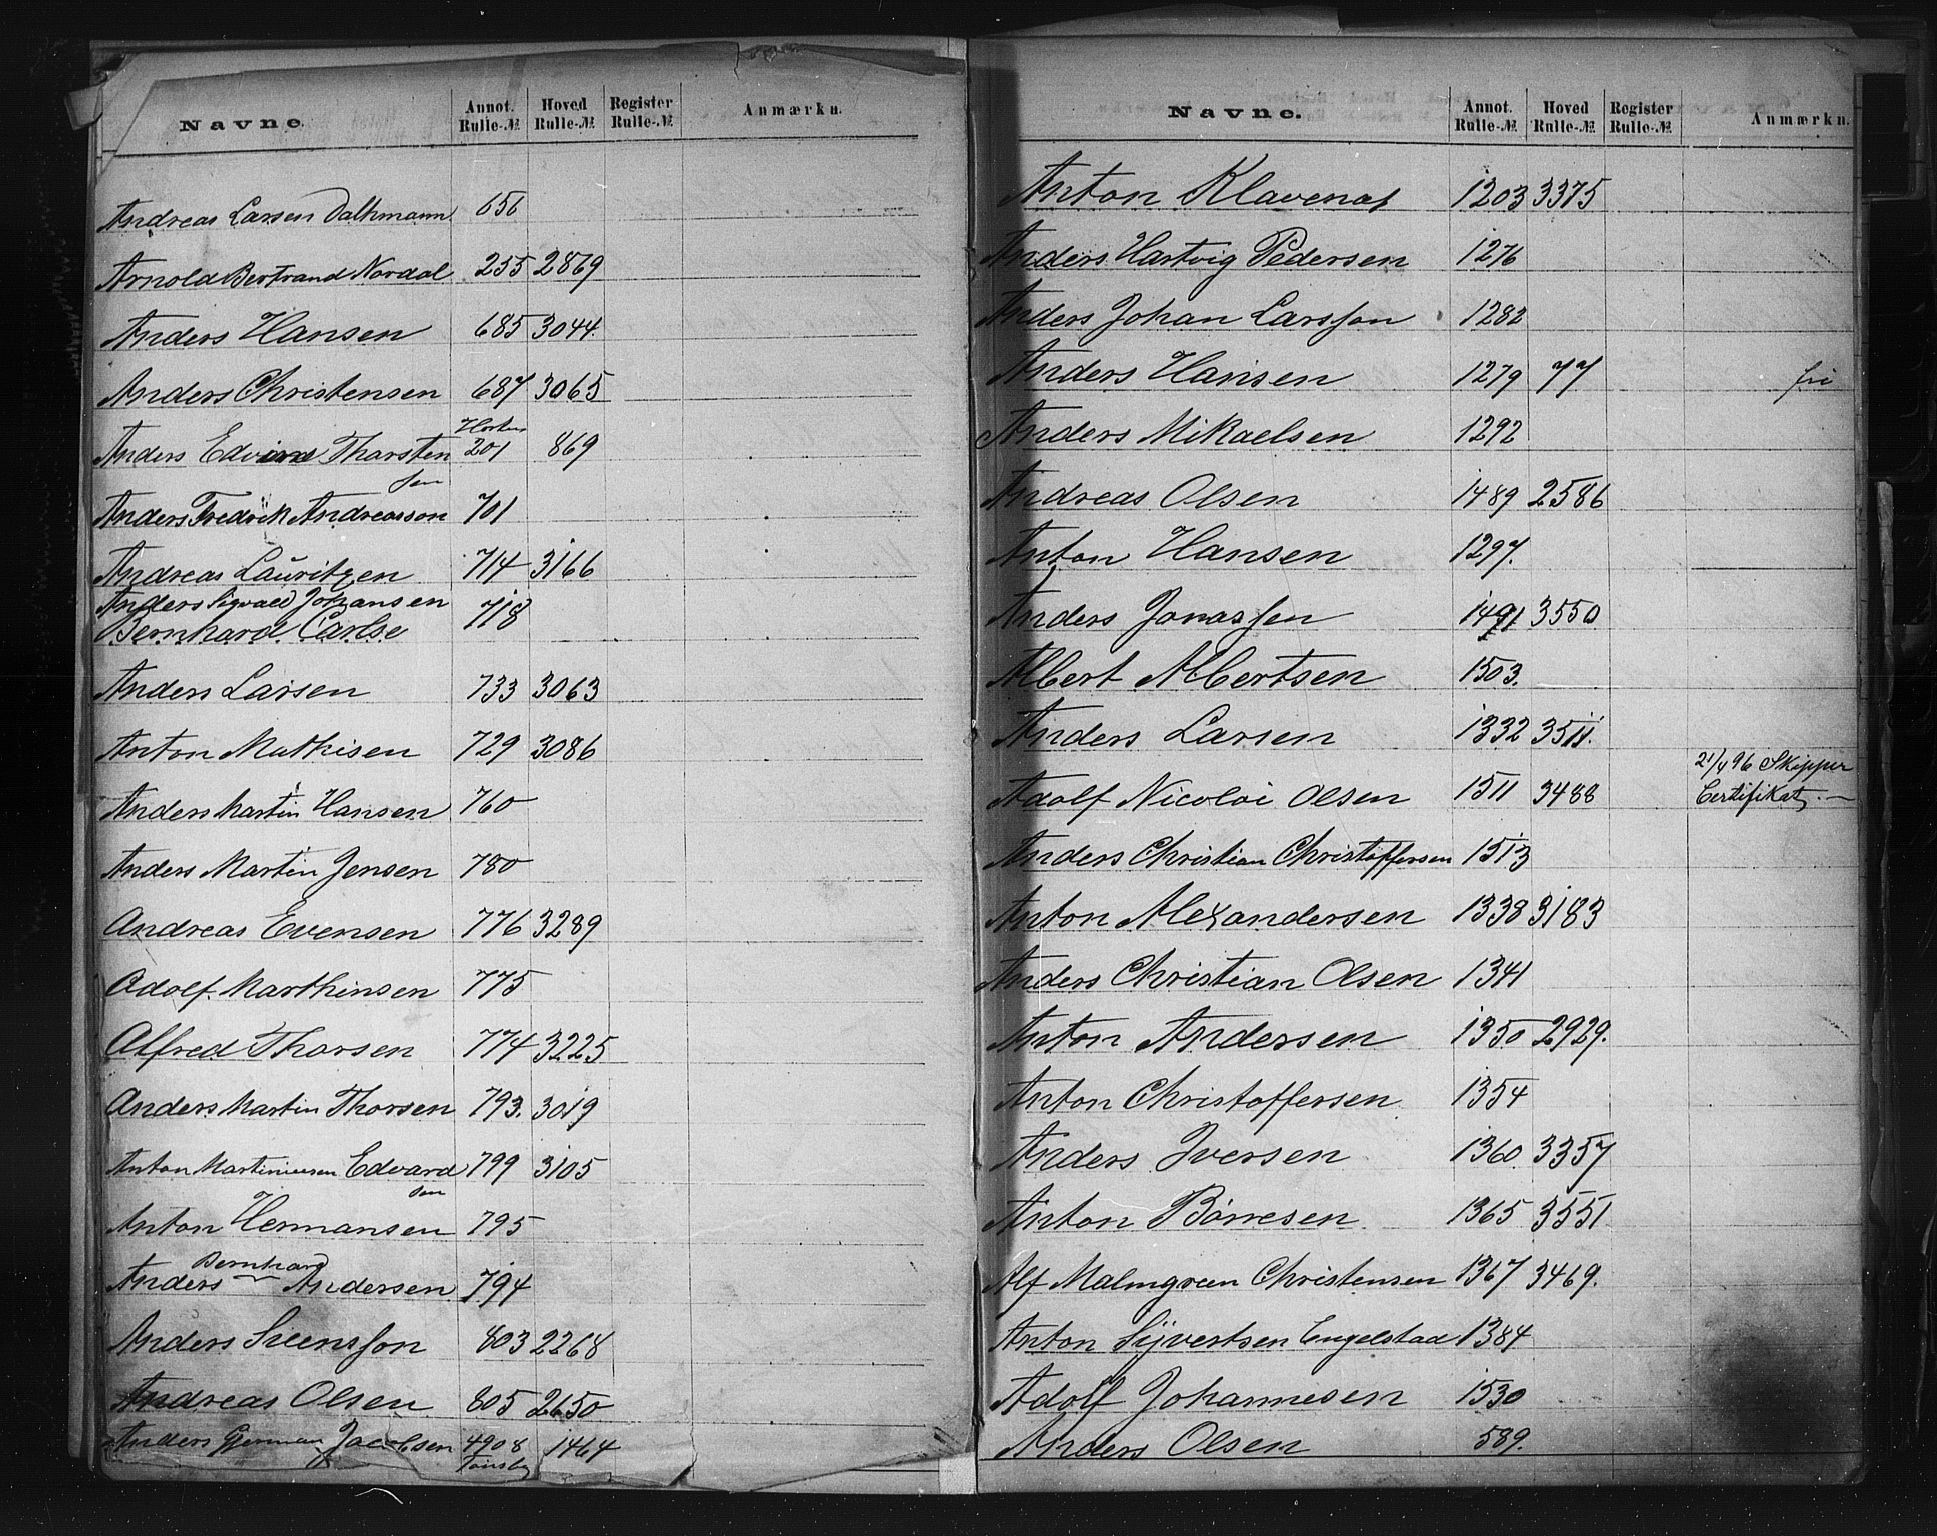 Navne. Annot. Rulle-№ Hoved Rulle-№ Register Rulle-№ Anmærkn.
Andreas Larsen Dalkmann 656
Arnold Bertrand Nordal 255 2869
Anders Hansen 685 3044.
Anders Christensen 687 3065
Horten
Anders Edvard Thorsten 201 869
sen
Anders Fredrik Andreasson 701
Andreas Lauritzen 714 3166
Anders Sigvald Johansen
Bernhard Carlse 718
Anders Larsen 733 3063
Anton Mathisen 729 3086
Anders Martin Hansen 760
Anders Martin Jensen 780
Andreas Evensen 776 3289
Adolf Marthinsen 775
Alfred Thorsen 774 3225
Anders Martin Thorsen 793. 3019
Anton Martiniusen Edvard 799 3105
sen
Anton Hermansen 795
Bernhard
Anders Andersen 794
Anders Svensson 803 2268
Andreas Olsen 805 2650
Anders German Jacobsen 4908 1464
Tønsbg
Navne. Annot. Rulle-№ Hoved Rulle-№ Register Rulle-№ Anmærkn.
Anton Klavenas 1203 3375
Anders Hartvig Pedersen 1276
Anders Johan Larsson 1282
Anders Hansen 1279 77 fri
Anders Mikaelsen 1292
Andreas Olsen 1489 2586
Anton Hansen 1297.
Anders Jonassen 1491 3550
Albert Albertsen 1503.
Anders Larsen 1332 3511.
21/4 96 Skipper
Adolf Nicolai Olsen 1511 3488 Certifikat.
Anders Christian Christoffersen 1513
Anton Alexandersen 1338 3183
Anders Christian Olsen 1341
Anton Andersen 1350 2929.
Anton Christoffersen 1354
Anders Iversen 1360. 3357
Anton Børresen 1365 3551
Alf Malmgreen Christensen 1367 3469.
Anton Sijvertsen Engelstad 1384
Adolf Johannesen 1530
Anders Olsen 589.